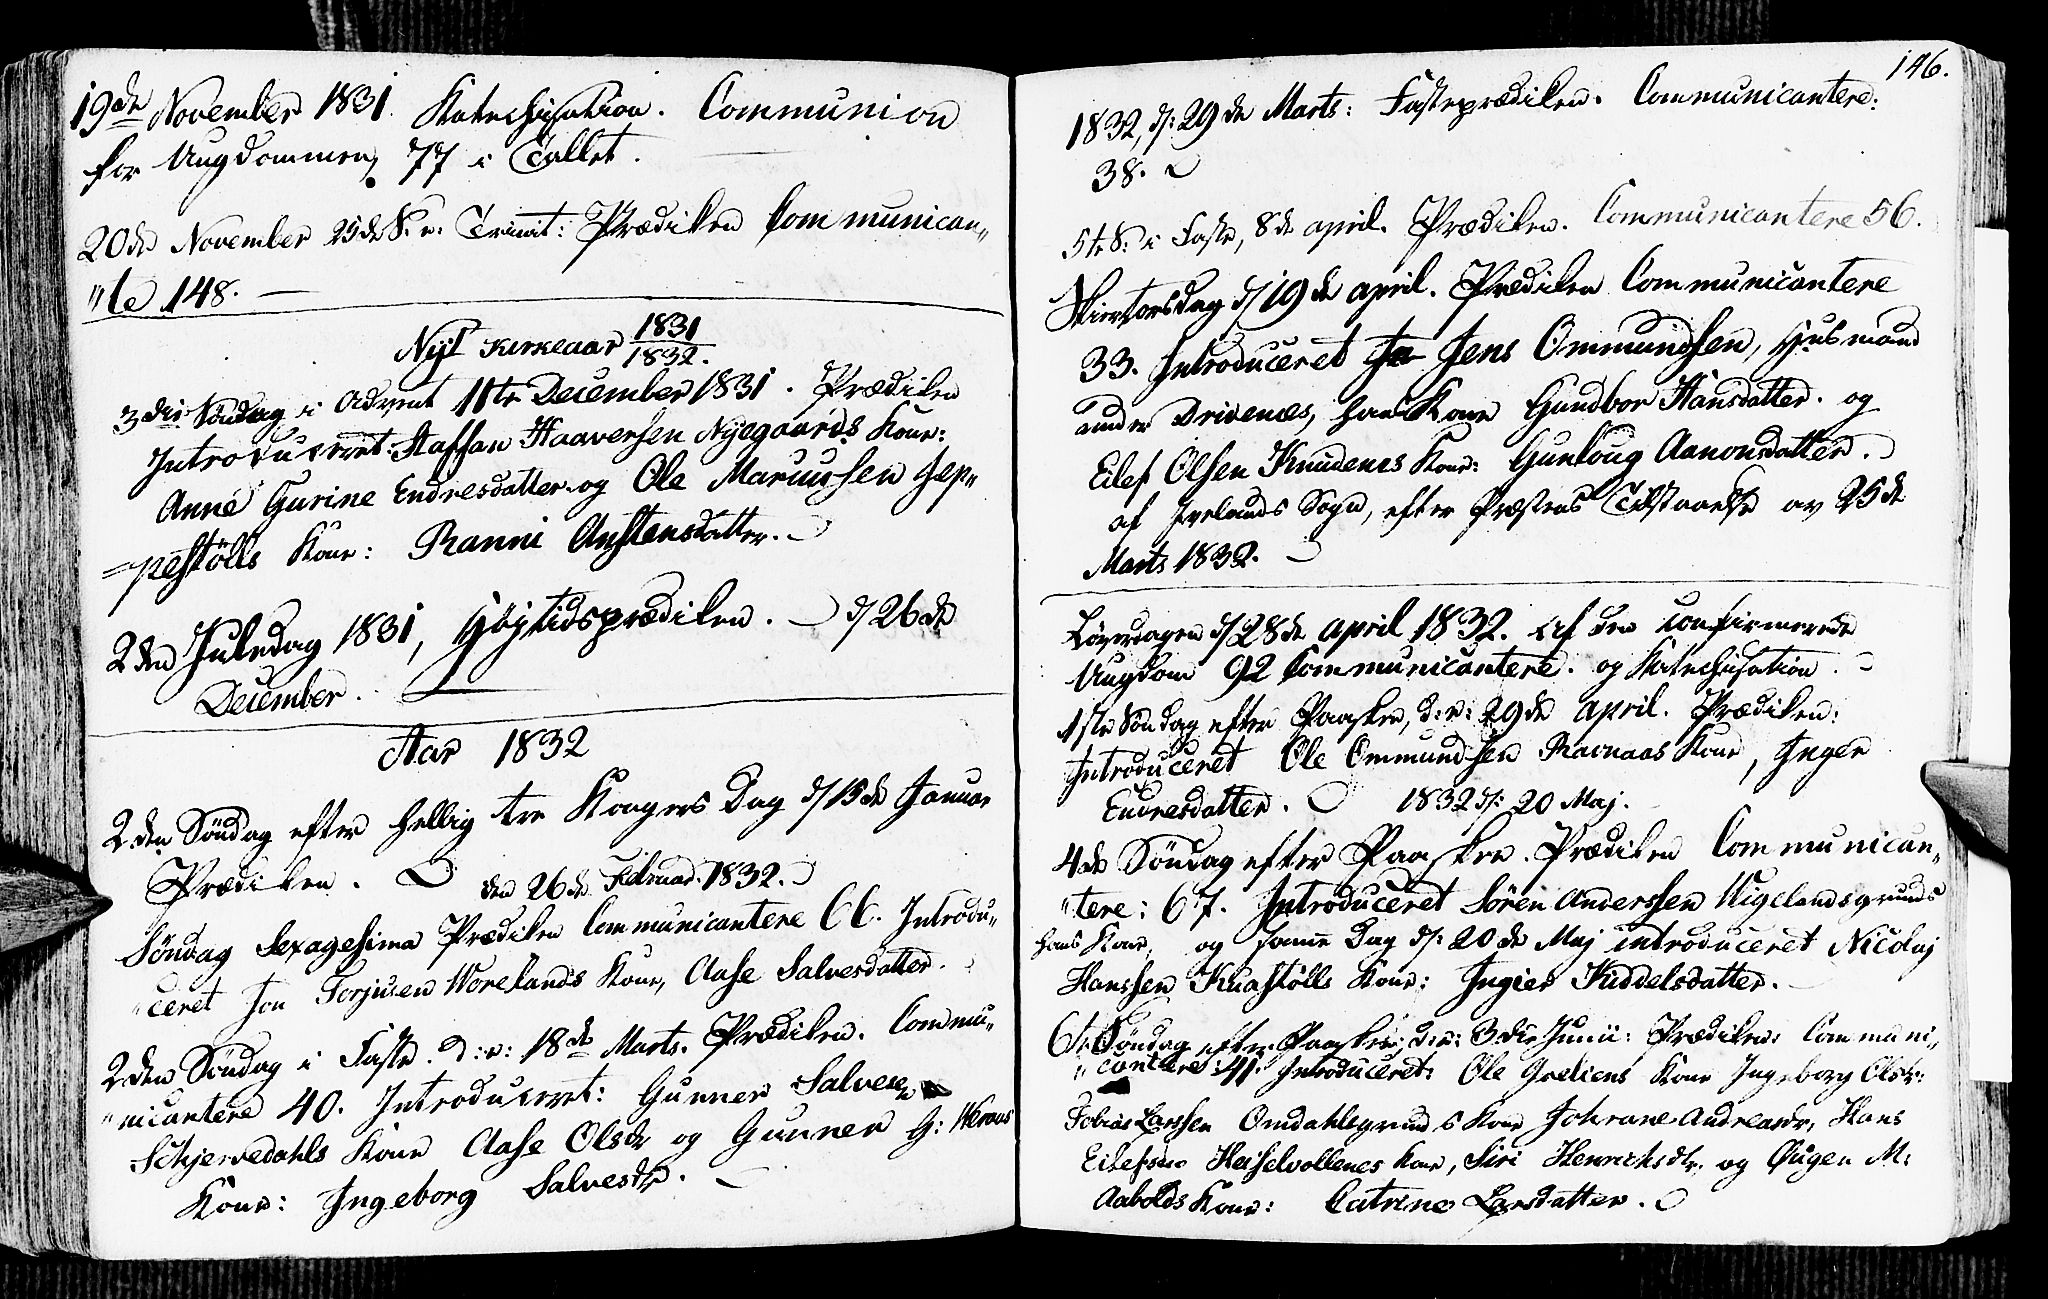 19de November 1831 Katechisation. Communion
for Ungdommen, 77 i Tallet.
20de November 25de S. e: Trinit: Prædiken Communican„
„te 148.
Nyt Kirkeaar 1831
1832.
3die Søndag i Advent 11te December 1831. Prædiken
Introduceret: Staffan Haaversen Nyegaards Kone:
Anne Gurine Endresdatter og Ole Marcussen Jep„
„pestølls Kone: Ranni Austensdatter.
2den Juledag 1831, Høytidsprædiken. d/ 26de
December.
Aar 1832
2den Søndag efter hellig tre Kongers Dag d/ 15de Januar
Prædiken. den 26de Februar. 1832.
Søndag Sexagesima Prædiken Communicantere 66. Introdu„
„ceret Jon Torjusen Worelands Kone, Aase Salvesdatter.
2den Søndag i Faste. d: e: 18de Marts. Prædiken. Commu„
„nicantere 40. Introduceret: Gunner Salvesen
Schjervedahls Kone Aase Olsdr og Gunner G: Weraas
Kone: Ingeborg Salvesdr.
146.
1832, d: 29de Marts: Fasteprædiken. Communicantere:
38.
5te S: i Faste, 8de april. Prædiken. Communicantere 56.
Skiertorsdag d/ 19de april. Prædiken Communicantere
33. Introduceret Jens Ommundsen, Huusmand
under Drivenæs, hans Kone Gundbor Hansdatter. og
Eilef Olsen Knudenes Kone: Gunloug Aanonsdatter.
af Ivelands Sogn, efter Præstens Tilstaaelse av 25de
Marts 1832.
Løverdagen d/ 28de april 1832. Af den confirmerede
Ungdom 92 Communicantere. og Katechisation.
1ste Søndag efter Paaske, d: e: 29de april. Prædiken:
Introduceret Ole Ommundsen Ravnaas Kone, Inger
Endresdatter. 1832 d: 20 Maj.
4de Søndag efter Paaske. Prædiken Communican„
„tere: 67. Introduceret Sören Anderssen Wigelandsgrunds
hans Kone, og samme Dag d: 20de Maj introduceret Nicolaj
Hanssen Knastølls Kone: Ingier Kiddelsdatter.
6te Søndag efter Paaske; d: e: 3die Junii: Prædiken: Communi„
„cantere: 41. Introduceret: Ole Kone Ingeborg Olsdr:
Tobias Larssen Omdahlsgrunds Kone Johrane Andreasdr, Hans
Eilefsen Hesselvollenes Kone, Siri Henrichsdtr. og Øugen M:
Aabolds Kone: Catrine Larsdatter.